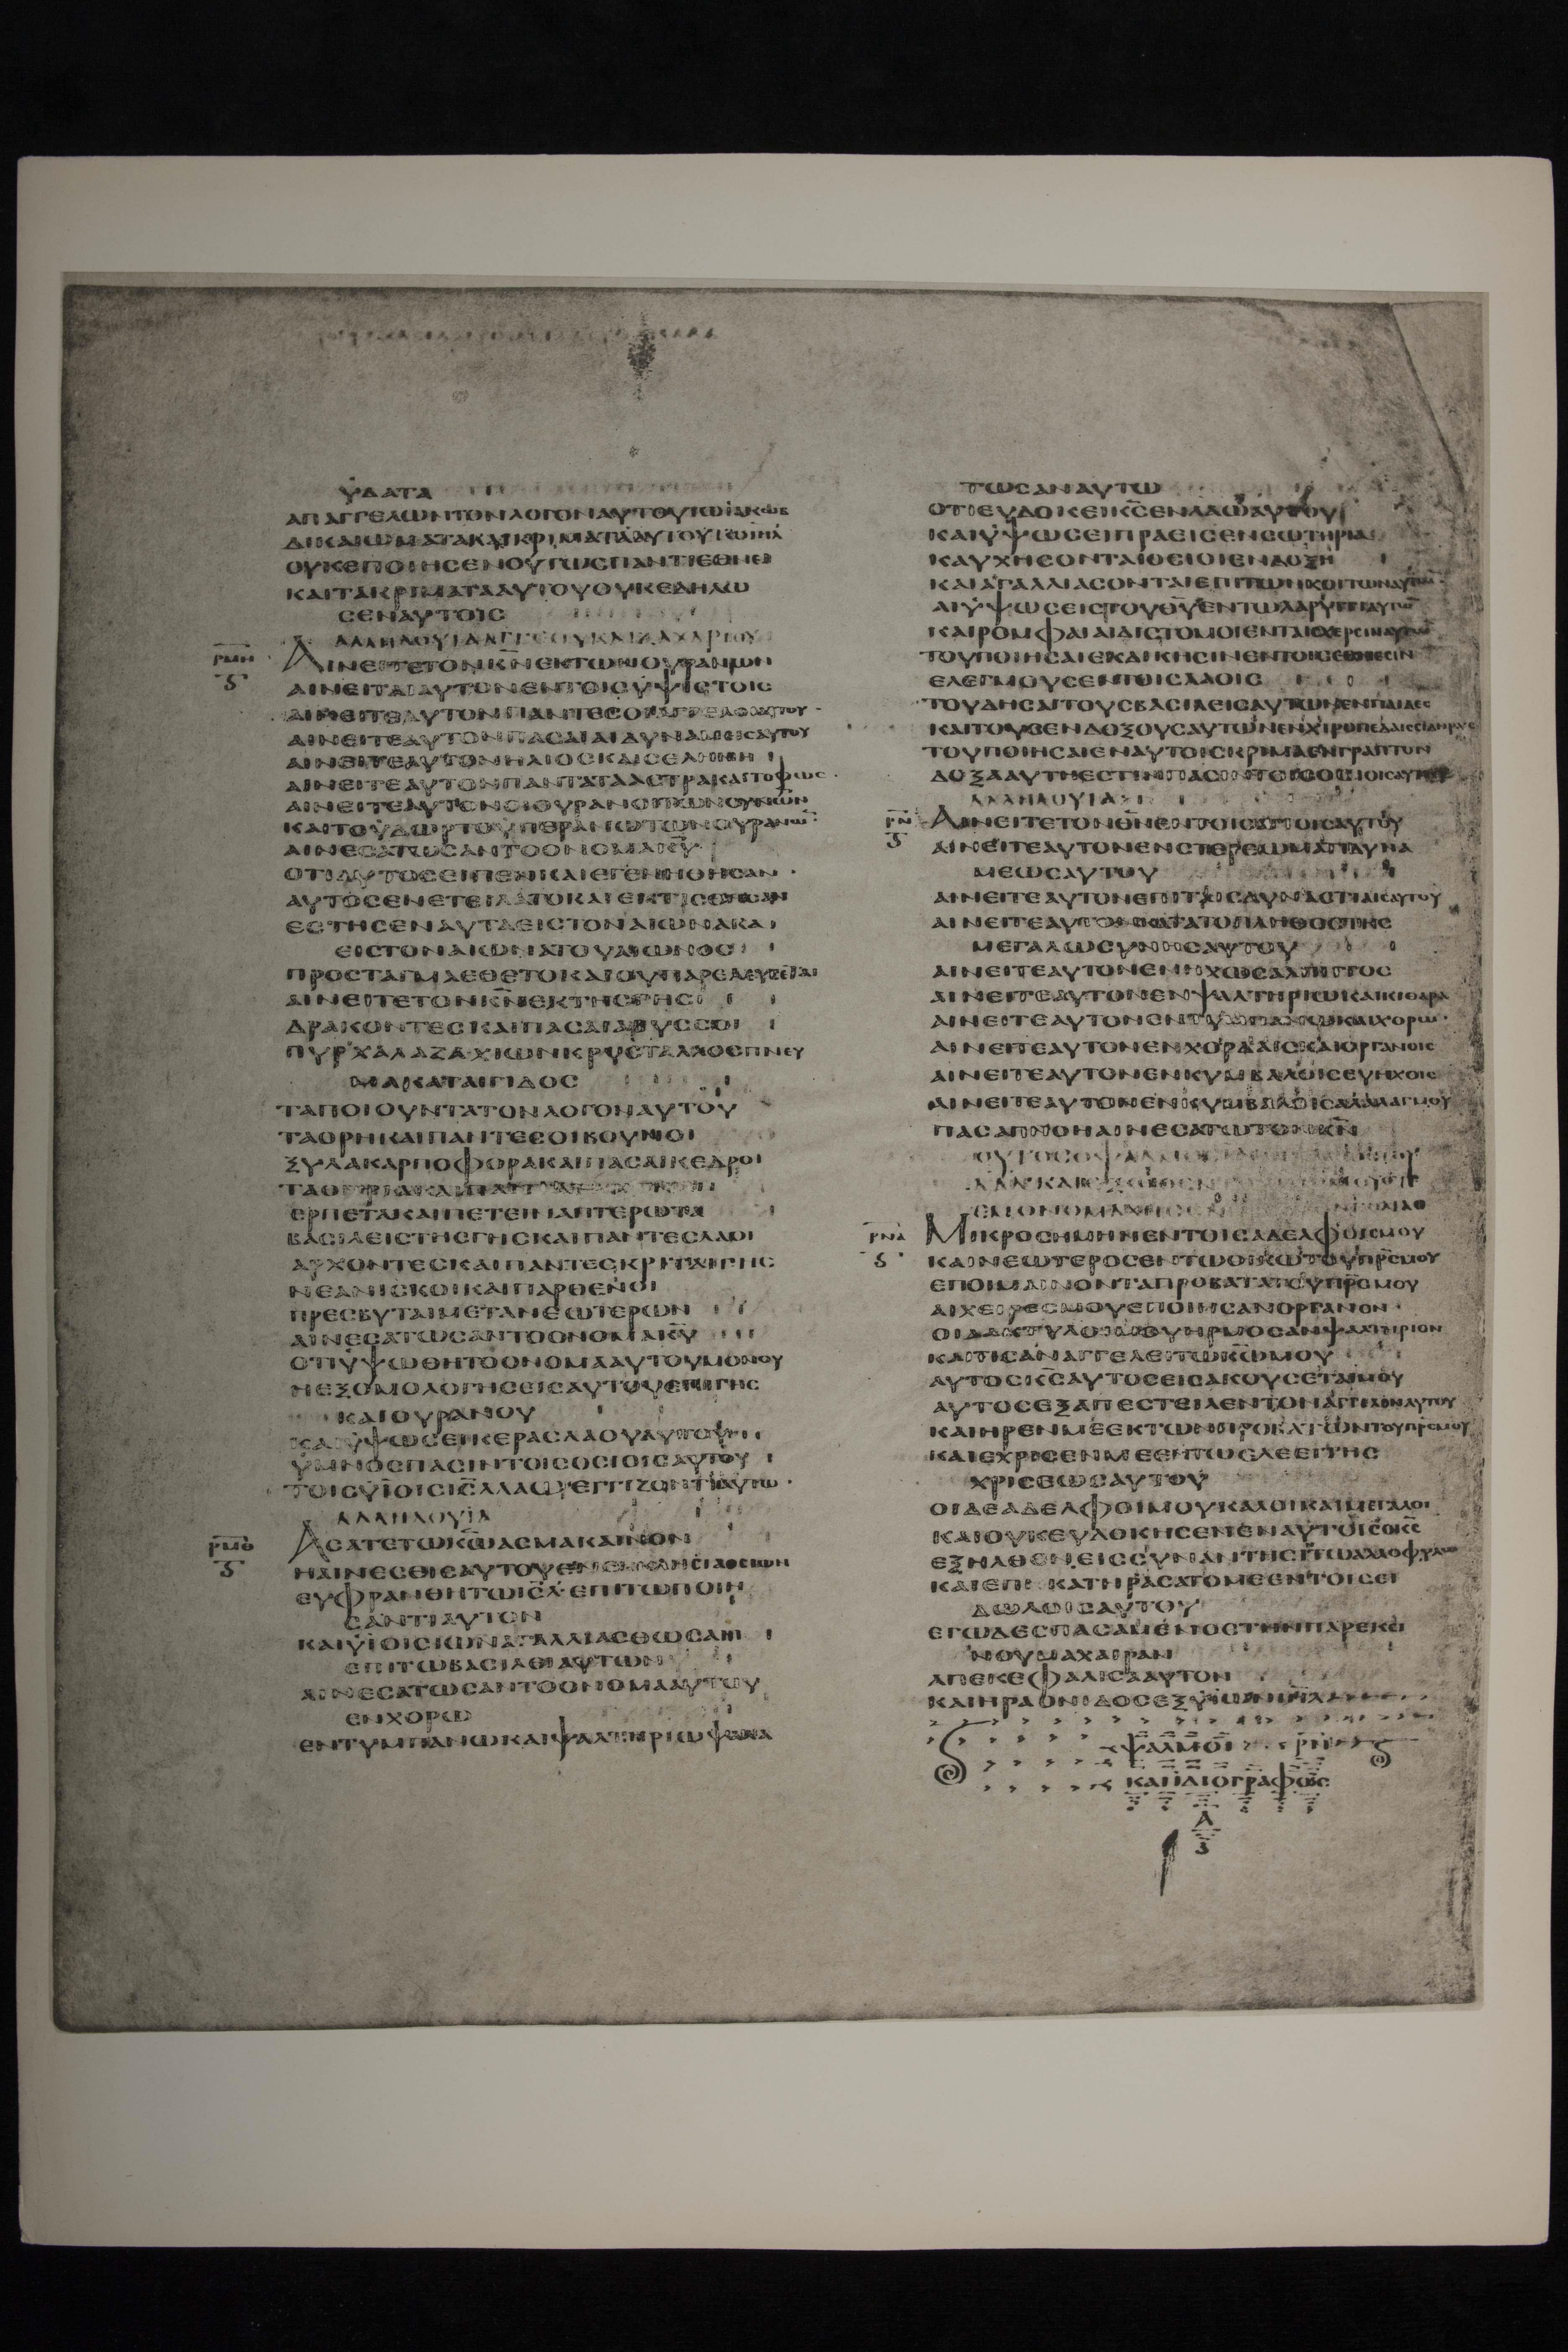 ὙΔΑΤΑ
ΑΠΑΓΓΕΛΩΝΤΟΝΛΟΓΟΝΑΥΤΟΥΤΩΙΑΚΩΒ
ΔΙΚΑΙΩΜΑΤΑΚΑΙΚΡΙΜΑΤΑΑΥΤΟΥΤΩΙΗΛ
ΟΥΚΕΠΟΙΗΣΕΝΟΥΤΩΣΠΑΝΤΙΕΘΝΕΙ
ΚΑΙΤΑΚΡΙΜΑΤΑΑΥΤΟΥΟΥΚΕΔΗΛΩ
ΣΕΝΑΥΤΟΙΣ
ΑΛΛΗΛΟΥΙΑΑΓΓΕΟΥΚΑΙΖΑΧΑΡΙΟΥ
ΡΜΗ
ΑΙΝΕΙΤΕΤΟΝΚΝΕΚΤΩΝΟΥΡΑΝΩΝ
ΑΙΝΕΙΤΑΙΑΥΤΟΝΕΝΤΟΙΣΥΨΙΣΤΟΙΣ
ΑΙΝΕΙΤΕΑΥΤΟΝΠΑΝΤΕΣΟΙΑΓΓΕΛΟΙΑΥΤΟΥ
ΑΙΝΕΙΤΕΑΥΤΟΝΠΑΣΑΙΑΙΔΥΝΑΜΕΙΣΑΥΤΟΥ
ΑΙΝΕΙΤΕΑΥΤΟΝΗΛΙΟΣΚΑΙΣΕΛΗΝΗ
ΑΙΝΕΙΤΕΑΥΤΟΝΠΑΝΤΑΤΑΑΣΤΡΑΚΑΙΤΟΦΩΣ
ΑΙΝΕΙΤΕΑΥΤΟΝΟΙΟΥΡΑΝΟΙΤΩΝΟΥΝΩΝ
ΚΑΙΤΟΥΔΩΡΤΟΥΠΕΡΑΝΩΤΩΝΟΥΡΑΝΩ
ΑΙΝΕΣΑΤΩΣΑΝΤΟΟΝΟΜΑΚΥ
ΟΤΙΑΥΤΟΣΕΙΠΕΝΚΑΙΕΓΕΝΗΘΗΣΑΝ
ΑΥΤΟΣΕΝΕΤΕΙΛΑΤΟΚΑΙΕΚΤΙΣΘΗΣΑΝ
ΕΣΤΗΣΕΝΑΥΤΑΕΙΣΤΟΝΑΙΩΝΑΚΑΙ
ΕΙΣΤΟΝΑΙΩΝΑΤΟΥΑΙΩΝΟΣ
ΠΡΟΣΤΑΓΜΑΕΘΕΤΟΚΑΙΟΥΠΑΡΕΛΕΥΣΕΤΑΙ
ΑΙΝΕΙΤΕΤΟΝΚΝΕΚΤΗΣΓΗΣ
ΔΡΑΚΟΝΤΕΣΚΑΙΠΑΣΑΙΑΒΥΣΣΟΙ
ΠΥΡΧΑΛΑΖΑΧΙΩΝΚΡΥΣΤΑΛΛΟΣΠΝΕΥ
ΜΑΚΑΤΑΙΓΙΔΟΣ
ΤΑΠΟΙΟΥΝΤΑΤΟΝΛΟΓΟΝΑΥΤΟΥ
ΤΑΟΡΗΚΑΙΠΑΝΤΕΣΟΙΒΟΥΝΟΙ
ΞΥΛΑΚΑΡΠΟΦΟΡΑΚΑΙΠΑΣΑΙΚΕΔΡΟΙ
ΕΡΠΕΤΑΚΑΙΠΕΤΕΙΝΑΠΤΕΡΩΤΑ
ΒΑΣΙΛΕΙΣΤΗΣΓΗΣΚΑΙΠΑΝΤΕΣΛΑΟΙ
ΑΡΧΟΝΤΕΣΚΑΙΠΑΝΤΕΣΚΡΙΤΑΙΓΗΣ
ΝΕΑΝΙΣΚΟΙΚΑΙΠΑΡΘΕΝΟΙ
ΠΡΕΣΒΥΤΑΙΜΕΤΑΝΕΩΤΕΡΩΝ
ΑΙΝΕΣΑΤΩΣΑΝΤΟΟΝΟΜΑΚΥ
ΟΤΙΥΨΩΘΗΤΟΟΝΟΜΑΑΥΤΟΥΜΟΝΟΥ
ΗΕΞΟΜΟΛΟΓΗΣΕΙΣΑΥΤΟΥΕΠΙΓΗΣ
ΚΑΙΟΥΡΑΝΟΥ
ΚΑΙΥΨΩΣΕΙΚΕΡΑΣΛΑΟΥΑΥΤΟΥ
ΥΜΝΟΣΠΑΣΙΝΤΟΙΣΟΣΙΟΙΣΑΥΤΟΥ
ΤΟΙΣΥΙΟΙΣΙΣΛΑΩΕΓΓΙΖΟΝΤΙΑΥΤΩ
ΑΛΛΗΛΟΥΙΑ
ΡΜΘ
ΑΣΑΤΕΤΩΚΩΑΣΜΑΚΑΙΝΟΝ
ΗΑΙΝΕΣΘΙΣΑΥΤΟΥΕΝΕΚΚΛΗΣΙΑΟΣΙΩΝ
ΕΥΦΡΑΝΘΗΤΩΙΣΛΕΠΙΤΩΠΟΙΗ
ΣΑΝΤΙΑΥΤΟΝ
ΚΑΙΥΙΟΙΣΙΩΝΑΓΑΛΛΙΑΣΘΩΣΑΝ
ΕΠΙΤΩΒΑΣΙΛΕΙΑΥΤΩΝ
ΑΙΝΕΣΑΤΩΣΑΝΤΟΟΝΟΜΑΑΥΤΟΥ
ΕΝΧΟΡΩ
ΕΝΤΥΜΠΑΝΩΚΑΙΨΑΛΤΗΡΙΩΨΑΛΑ
ΤΩΣΑΝΑΥΤΩ
ΟΤΙΕΥΔΟΚΕΙΚΣΕΝΛΑΩΑΥΤΟΥ
ΚΑΙΥΨΩΣΕΙΠΡΑΕΙΣΕΝΣΩΤΗΡΙΑ
ΚΑΥΧΗΣΟΝΤΑΙΟΣΙΟΙΕΝΔΟΞΗ
ΚΑΙΑΓΑΛΛΙΑΣΟΝΤΑΙΕΠΙΤΩΝΚΟΙΤΩΝΑΥΤΩ
ΑΙΥΨΩΣΕΙΣΤΟΥΘΥΕΝΤΩΛΑΡΥΓΓΙΑΥΤΩ
ΚΑΙΡΟΜΦΑΙΑΙΔΙΣΤΟΜΟΙΕΝΤΑΙΣΧΕΡΣΙΝΑΥΤΩ
ΤΟΥΠΟΙΗΣΑΙΕΚΔΙΚΗΣΙΝΕΝΤΟΙΣΕΘΝΕΣΙΝ
ΕΛΕΓΜΟΥΣΕΝΤΟΙΣΛΑΟΙΣ
ΤΟΥΔΗΣΑΙΤΟΥΣΒΑΣΙΛΕΙΣΑΥΤΩΝΕΝΠΕΔΑΙΣ
ΚΑΙΤΟΥΣΕΝΔΟΞΟΥΣΑΥΤΩΝΕΝΧΙΡΟΠΕΔΑΙΣΣΙΔΗΡΑΙΣ
ΤΟΥΠΟΙΗΣΑΙΕΝΑΥΤΟΙΣΚΡΙΜΑΕΝΓΡΑΠΤΟΝ
ΔΟΞΑΑΥΤΗΕΣΤΙΝΠΑΣΙΝΤΟΙΣΟΣΙΟΙΣΑΥΤΟΥ
ΑΛΛΗΛΟΥΙΑ
ΡΝ
ΑΙΝΕΙΤΕΤΟΝΘΝΕΝΤΟΙΣΑΓΙΟΙΣΑΥΤΟΥ
ΑΙΝΕΙΤΕΑΥΤΟΝΕΝΣΤΕΡΕΩΜΑΤΙΔΥΝΑ
ΜΕΩΣΑΥΤΟΥ
ΑΙΝΕΙΤΕΑΥΤΟΝΕΠΙΤΑΙΣΔΥΝΑΣΤΙΑΙΣΑΥΤΟΥ
ΑΙΝΕΙΤΕΑΥΤΟΝΚΑΤΑΤΟΠΛΗΘΟΣΤΗΣ
ΜΕΓΑΛΩΣΥΝΗΣΑΥΤΟΥ
ΑΙΝΕΙΤΕΑΥΤΟΝΕΝΗΧΩΣΑΛΠΙΓΓΟΣ
ΑΙΝΕΙΤΕΑΥΤΟΝΕΝΨΑΛΤΗΡΙΩΚΑΙΚΙΘΑΡΑ
ΑΙΝΕΙΤΕΑΥΤΟΝΕΝΤΥΜΠΑΝΩΚΑΙΧΟΡΩ
ΑΙΝΕΙΤΕΑΥΤΟΝΕΝΧΟΡΔΑΙΣΚΑΙΟΡΓΑΝΟΙΣ
ΑΙΝΕΙΤΕΑΥΤΟΝΕΝΚΥΜΒΑΛΟΙΣΕΥΗΧΟΙΣ
ΑΙΝΕΙΤΕΑΥΤΟΝΕΝΚΥΜΒΑΛΟΙΣΑΛΑΛΑΓΜΟΥ
ΠΑΣΑΠΝΟΗΑΙΝΕΣΑΤΩΤΟΝΚΝ
ΟΥΤΟΣΟΨΑΛΜΟΣ
ΕΜΟΝΟΜΑΧΗΣΕ
ΡΝΑ
ΜΙΚΡΟΣΗΜΗΝΕΝΤΟΙΣΑΔΕΛΦΟΙΣΜΟΥ
ΚΑΙΝΕΩΤΕΡΟΣΕΝΤΩΟΙΚΩΤΟΥΠΡΣΜΟΥ
ΕΠΟΙΜΑΙΝΟΝΤΑΠΡΟΒΑΤΑΤΟΥΠΡΣΜΟΥ
ΑΙΧΕΙΡΕΣΜΟΥΕΠΟΙΗΣΑΝΟΡΓΑΝΟΝ
ΟΙΔΑΚΤΥΛΟΙΜΟΥΗΡΜΟΣΑΝΨΑΛΤΗΡΙΟΝ
ΚΑΙΤΙΣΑΝΑΓΓΕΛΕΙΤΩΚΩΜΟΥ
ΑΥΤΟΣΚΣΑΥΤΟΣΕΙΣΑΚΟΥΣΕΤΑΙΜΟΥ
ΑΥΤΟΣΕΞΑΠΕΣΤΕΙΛΕΝΤΟΝΑΓΓΕΛΟΝΑΥΤΟΥ
ΚΑΙΗΡΕΝΜΕΕΚΤΩΝΠΡΟΒΑΤΩΝΤΟΥΠΡΣΜΟΥ
ΚΑΙΕΧΡΙΣΕΝΜΕΕΝΤΩΕΛΕΕΙΤΗΣ
ΧΡΙΣΕΩΣΑΥΤΟΥ
ΟΙΔΕΑΔΕΛΦΟΙΜΟΥΚΑΛΟΙΚΑΙΜΕΓΑΛΟΙ
ΚΑΙΟΥΚΕΥΔΟΚΗΣΕΝΕΝΑΥΤΟΙΣΟΚΣ
ΕΞΗΛΘΟΝΕΙΣΣΥΝΑΝΤΗΣΙΤΩΑΛΛΟΦΥΛΩ
ΚΑΙΕΠΙΚΑΤΗΡΑΣΑΤΟΜΕΕΝΤΟΙΣΕΙ
ΔΩΛΟΙΣΑΥΤΟΥ
ΕΓΩΔΕΣΠΑΣΑΜΕΝΟΣΤΗΝΠΑΡΕΚΕΙ
ΝΟΥΜΑΧΑΙΡΑΝ
ΑΠΕΚΕΦΑΛΙΣΑΑΥΤΟΝ
ΚΑΙΗΡΑΟΝΙΔΟΣΕΞΥΙΩΝΙΗΛ
ΨΑΛΜΟΙ ΡΝ
ΚΑΙΙΔΙΟΓΡΑΦΟΣ
Α